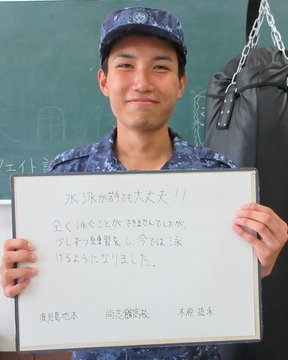 水泳が苦手でも大丈夫!!
全く泳ぐことができませんでしたが、
少しずつ練習をし、今では泳
げるようになりました.
鹿児島地本 尚志館高校 木原